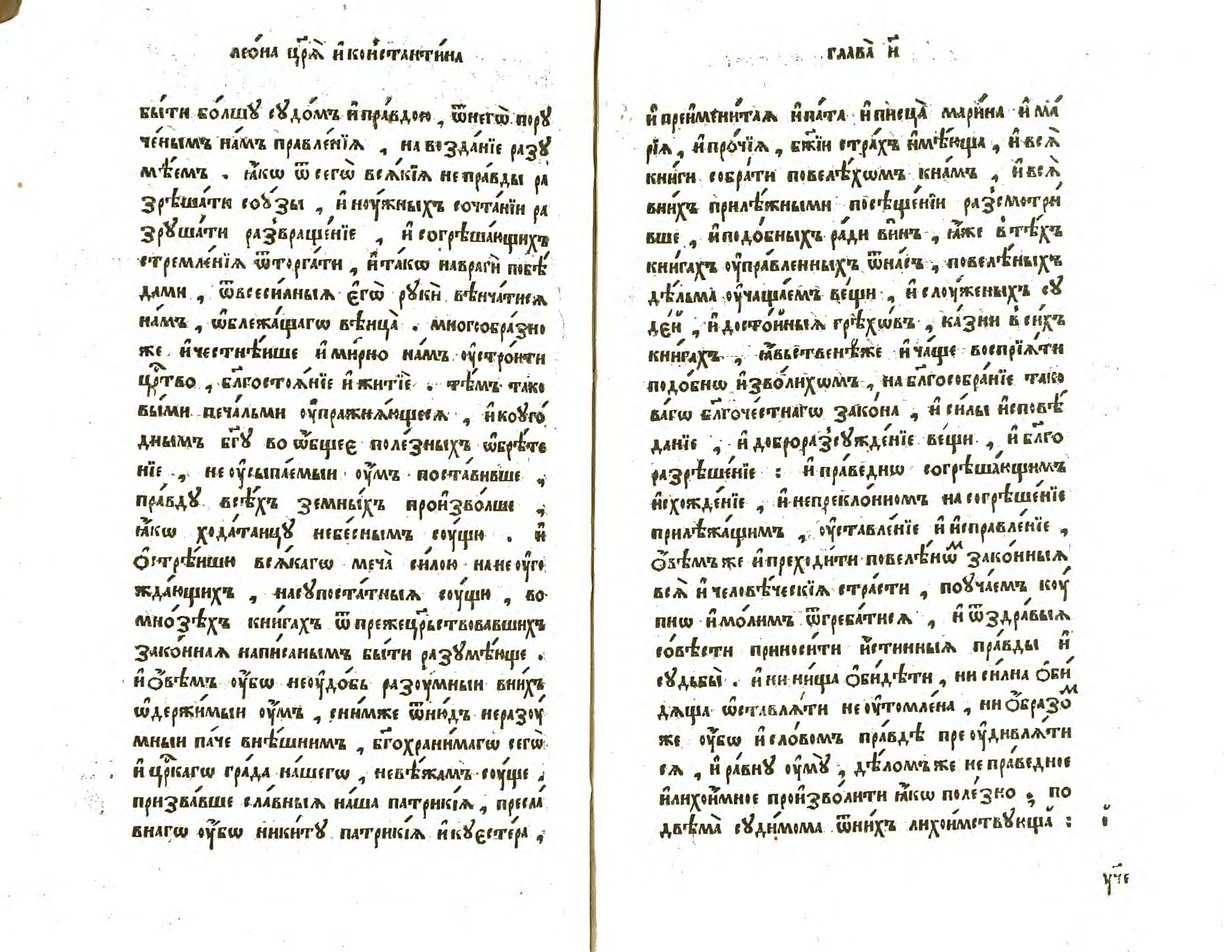 леѻ́на цр҃ѧ̀ и҆ константи́на
бы́ти бо́лшꙋ сꙋдо́мъ и҆пра́вдою , ѿнегѡ̀ порꙋ
че́нымъ на́мъ правле́нїѧ , на возда́нїе разꙋ
мѣ́емъ . ꙗ҆́кѡ ѿ сегѡ̀ всѧ́кїѧ непра́вды ра
зрѣша́ти соу́зы , и҆ ноу́жныхъ сочта́нїи ра
зрꙋша́ти развраще́нїе , и҆ согрѣша́ющихъ
стремле́нїѧ ѿторга́ти , и҆та́кѡ наврагѝ побѣ́
дами , ѿвсеси́лныѧ є҆гѡ̀ рꙋкѝ вѣнча́тисѧ
на́мъ , ѡ҆блежа́щагѡ вѣнца̀ . многоѻбра́зно
же и҆че́стнѣише и҆ ми́рно на́мъ оу҆стро́ити
цр҃тво , бл҃госто́ѧнїе и҆ житїѐ . тѣ́мъ тако
вы́ми печа́льми оу҆пражнѧ́ющесѧ , и҆ коуго́
днымъ бг҃ꙋ во ѡ҆́бщее поле́зныхъ ѡ҆брѣ́те
нїе , не оу҆сыпа́емыи оу҆́мъ поста́вивше ,
пра́вдꙋ всѣ́хъ земны́хъ произво́лше ,
ꙗ҆́кѡ хода́таицꙋ небе́снымъ соу́щю . и҆
ѻ҆стрѣ́ишю всѧ́кагѡ меча̀ си́лою на не оу҆го
жда́ющихъ , насꙋпоста́тныѧ соу́щю , во
мно́зѣхъ кни́гахъ ѿ прежецр҃ьствовавшихъ
зако́ннаѧ написа́нымъ бы́ти разꙋмѣ́юще .
и҆ ѻ҆вѣ́мъ оу҆́бѡ неоу҆до́бь разоу́мныи вни́хъ
ѡ҆держи́мыи оу҆́мъ , сни́мже ѿню́дъ неразоу́
мныи па́че внѣ́шнимъ , бг҃охрани́магѡ сегѡ̀
и҆ цр҃кагѡ гра́да на́шегѡ , невѣ́жамъ соу́ще ,
призва́вше сла́вныѧ на́ша патри́кїѧ , пресла́
внагѡ оу҆́бѡ ники́тꙋ патри́кїѧ и҆ кꙋе́стера ,
глава̀ и҃
и҆ преимени́таѧ и҆па́та и҆ писца̀ мари́на и҆ ма́
рїѧ , и҆ про́чїѧ , бж҃їи стра́хъ и҆мѣ́юща , и҆ всѧ̀
кни́ги собра́ти повелѣ́хомъ кна́мъ , и҆ всѧ̀
вни́хъ прилѣ́жными посѣще́нїи разсмотри́
вше , и҆ подо́бныхъ ра́ди ви́нъ , ꙗ҆́же в тѣ́хъ
кни́гахъ оу҆пра́вленныхъ ѿна́съ , повелѣ́ныхъ
дѣ́льма оу҆чаща́емъ ве́щи , и҆ слоу́женыхъ сꙋ
де́й , и҆ досто́йныѧ грѣхо́въ , ка́зни в си́хъ
кни́гахъ , ꙗ҆́вьственѣже и҆ ча́ще воспрїѧ́ти
подо́бнѡ и҆зво́лихомъ , на бл҃гособра́нїе тако
ва́гѡ бл҃гоче́стнагѡ зако́на , и҆ си́лы и҆сповѣ́
данїе , и҆ доброразсꙋжде́нїе ве́щи , и҆ бл҃го
разрѣше́нїе : и҆ пра́веднѡ согрѣша́ющимъ
и҆схожде́нїе , и҆ непрекло́нномъ на согрѣше́нїе
прилѣжа́щимъ , оу҆ставле́нїе и҆ и҆справле́нїе ,
ѻ҆вѣ́мъ же и҆ преходи́ти повелѣ́нѡм зако́нныѧ
всѧ̀ и҆ человѣ́ческїѧ стра́сти , поꙋча́емъ коу́
пнѡ и҆ мо́лимъ ѿгреба́тисѧ , и҆ ѿ здра́выѧ
со́вѣсти приноси́ти и҆́стинныѧ пра́вды и҆
сꙋдьбы̀ . и҆ ни ни́ща ѻ҆би́дѣти , ни си́лна ѻ҆би́
дѧща ѡ҆ставлѧ́ти не оу҆томле́на , ни ѻ҆́бразом
же оу҆́бѡ и҆ сло́вомъ пра́вдѣ преоу҆дивлѧ́ти
сѧ , и҆ ра́внꙋ оу҆мꙋ̀ , дѣ́ломъ же непра́ведное
и҆ лихои́мное произво́лити ꙗ҆́кѡ поле́зно , по
двѣма̀ сꙋди́мома ѿни́хъ лихои́мствꙋюща̀ :